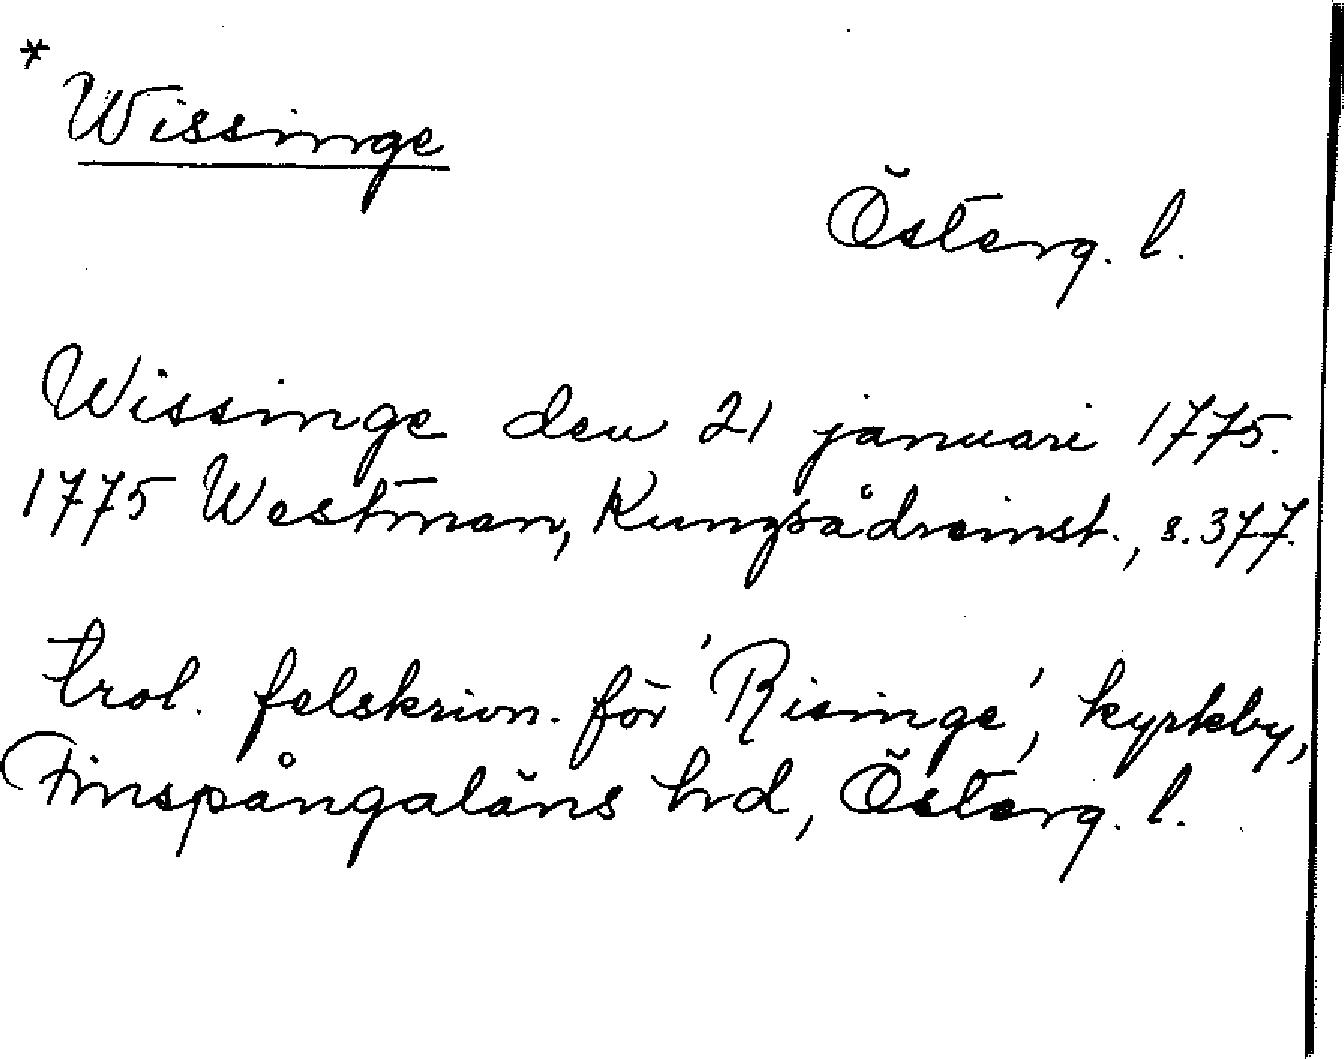 * Wissinge
Österg. l.
Wissinge den 21 januari 1775.
1775 Westman, Kungsådreinst., s. 377.
trol. felskrivn. för 'Risinge', kyrkby,
Finspångaläns hrd, Österg. l.